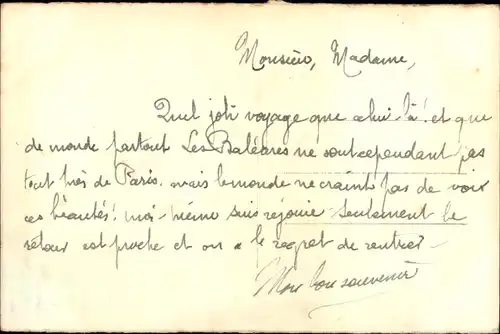 Monsieur, Madame,
Quel joli voyage que celui-là! et que
de monde partout Les Baléares ne sont cependant pas
tout près de Paris. mais le monde ne craint pas de voir
ces beautés! moi-même suis réjouie seulement le
retour est proche et on a le regret de rentrer -
Mon bon souvenir